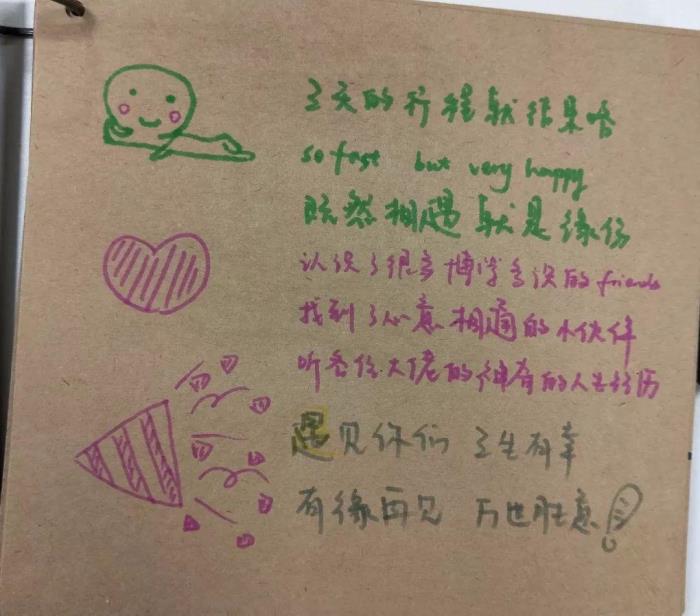 3天的行程就结束咯
so fast but very happy
既然相遇就是缘份
认识了很多博学多识的friends
找到了心意相通的小伙伴
听各位大佬的神奇的人生经历
遇见你们 三生有幸
有缘再见 万世胜意!